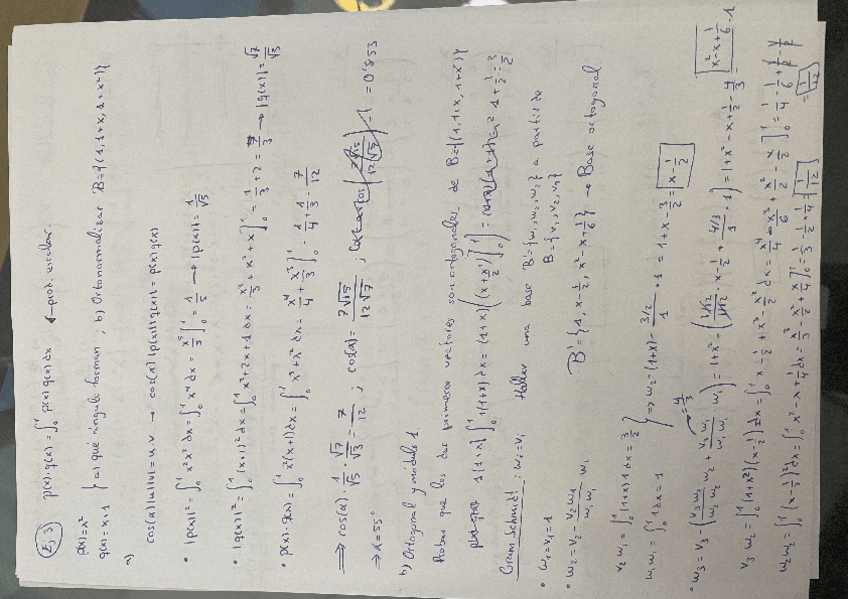 Ej 3) p(x)·q(x) = ∫₀¹ p(x) q(x) dx ← prod. escalar.
p(x) = x²
q(x) = x+1 } a) qué ángulo forman ; b) Ortonormalizar B = {(1, 1+x, 1+x²)}
a)
cos(α)|u||v| = u·v → cos(α)|p(x)||q(x)| = p(x)q(x)
• |p(x)|² = ∫₀¹ x²x² dx = ∫₀¹ x⁴ dx = x⁵/5 ]₀¹ = 1/5 → |p(x)| = 1/√5
• |q(x)|² = ∫₀¹ (x+1)² dx = ∫₀¹ x²+2x+1 dx = x³/3 + x² + x ]₀¹ = 1/3 + 2 = 7/3 → |q(x)| = √7/√3
• p(x)·q(x) = ∫₀¹ x²(x+1) dx = ∫₀¹ x³+x² dx = x⁴/4 + x³/3 ]₀¹ = 1/4 + 1/3 = 7/12
⟹ cos(α)· 1/√5 · √7/√3 = 7/12 ; cos(α) = 7√15/12√7 ; = 0'853
⇒ α = 55°
b) Ortogonal y módulo 1
Probar que los dos primeros vectores son ortogonales de B = {(1, 1+x, 1+x²)}
1(1+x) ∫₀¹ 1(1+x) dx = (1+x) ((x + x²/2) ]₀¹) = 1 + 1/2 = 3/2
Gram Schmidt: w₁ = v₁ Hallar una base B' = {w₁, w₂, w₃} a partir de
B = {v₁, v₂, v₃}
• w₁ = v₁ = 1
• w₂ = v₂ − v₂w₁/w₁w₁ w₁ B' = {1, x − 1/2, x² − x + 1/6} → Base ortogonal
v₂w₁ = ∫₀¹ (1+x) 1 dx = 3/2
w₁w₁ = ∫₀¹ 1 dx = 1 } ⇒ w₂ = (1+x) − 3/2/1 · 1 = 1 + x − 3/2 = x − 1/2
• w₃ = v₃ − (v₃w₂/w₂w₂ w₂ + v₃w₁/w₁w₁ w₁) = 1 + x² − (1/12/1/12 · x − 1/2 + 4/3/1 · 1) = 1 + x² − x + 1/2 − 4/3 = x² − x + 1/6
v₃w₂ = ∫₀¹ (1+x²)(x − 1/2) dx = ∫₀¹ x − 1/2 + x³ − x²/2 dx =
w₂w₂ = ∫₀¹ (x − 1/2)² dx = ∫₀¹ x² − x + 1/4 dx = x³/3 − x²/2 + x/4 ]₀¹ = 1/3 − 1/2 + 1/4 = 1/12